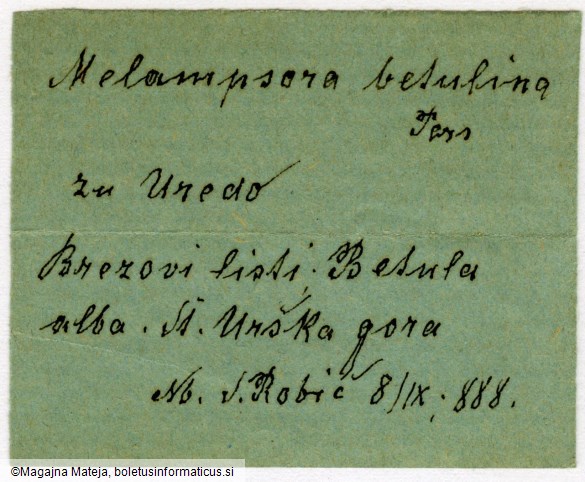 Melampsora betulina
Pers
zu Uredo
Brezovi listi. Betula
alba. St. Urška gora
Nb. S. Robič 8/IX. 888.
©Magajna Mateja, boletusinformaticus.si